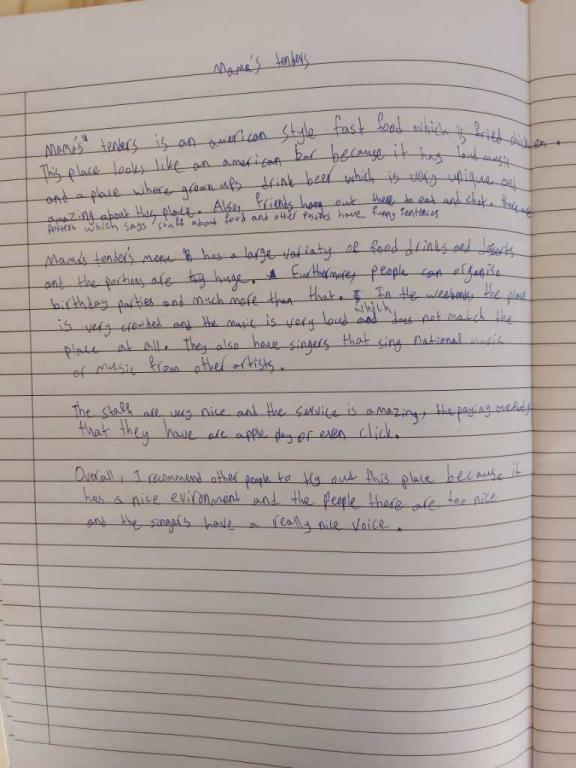 Mama's tenders
Mama's tenders is an american style fast food which is fried chicken.
This place looks like an american bar because it has loud music
and a place where grown ups drink beer which is very unique and
amazing about this place. Also, friends hang out there to eat and chat. there are
posters which says stuff about food and other posters have funny sentences
Mama's tender's menu has a large variaty of food drinks and
and the portions are huge. Furthermore, people can organise
birthday parties and much more than that. In the weekends the place
is very crowded and the music is very loud which does not match the
place at all. They also have singers that sing national music
or music from other artists.
The staff are very nice and the service is amazing, the paying methods
that they have are apple pay or even click.
Overall, I recommend other people to try out this place because it
has a nice evironment and the people there are too nice
and the singers have a really nice voice.